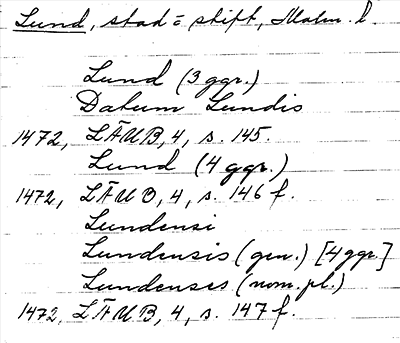 Lund, stad o stift, Malm. l.
Lund (3 ggr.)
Datum Lundis
1472, LÄUB, 4, s. 145.
Lund (4 ggr.)
1472, LÄUB, 4, s. 146 f.
Lundensi
Lundensis (gen.) [4 ggr.]
Lundenses (nom. pl.)
1472, LÄUB, 4, s. 147 f.